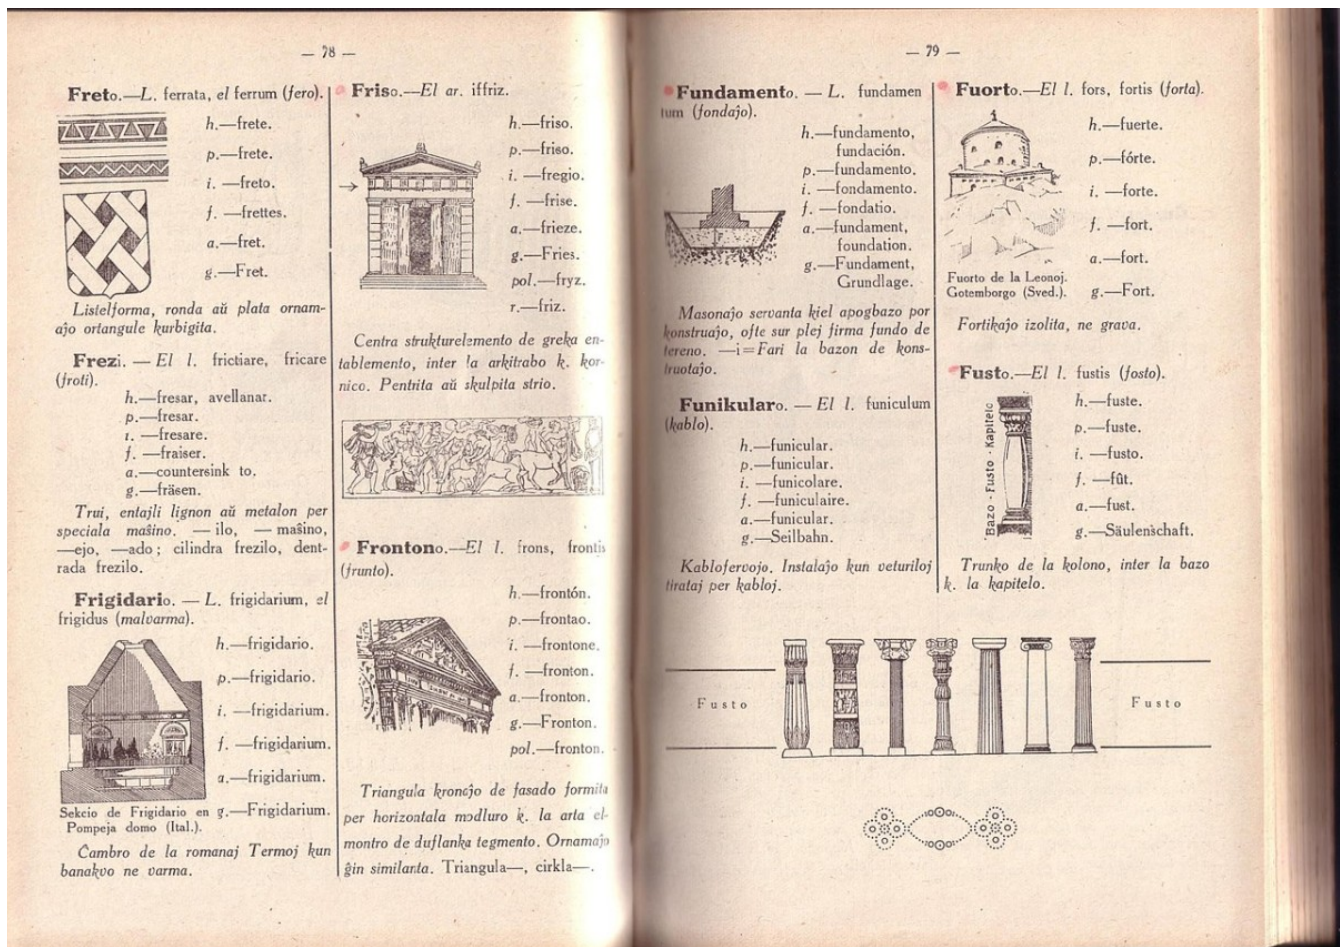 — 78 —
Freto.—L. ferrata, el ferrum (fero).
h.—frete.
p.—frete.
i. —freto.
f. —frettes.
a.—fret.
g.—Fret.
Listelforma, ronda aŭ plata ornam-
aĵo ortangule kurbigita.
Frezi. — El l. frictiare, fricare
(froti).
h.—fresar, avellanar.
p.—fresar.
i. —fresare.
f. —fraiser.
a.—countersink to.
g.—fräsen.
Trui, entajli lignon aŭ metalon per
speciala maŝino. — ilo, — maŝino,
—ejo, —ado; cilindra frezilo, dent-
rada frezilo.
Frigidario. — L. frigidarium, el
frigidus (malvarma).
h.—frigidario.
p.—frigidario.
i. —frigidarium.
f. —frigidarium.
a.—frigidarium.
g.—Frigidarium.
Sekcio de Frigidario en
Pompeja domo (Ital.).
Ĉambro de la romanaj Termoj kun
banakvo ne varma.
Friso.—El ar. iffriz.
h.—friso.
p.—friso.
i. —fregio.
f. —frise.
a.—frieze.
g.—Fries.
pol.—fryz.
r.—friz.
Centra strukturelemento de greka en-
tablemento, inter la arkitrabo k. kor-
nico. Pentrita aŭ skulpita strio.
Frontono.—El l. frons, frontis
(frunto).
h.—frontón.
p.—frontao.
i. —frontone.
f. —fronton.
a.—fronton.
g.—Fronton.
pol.—fronton.
Triangula kronejo de fasado formita
per horizontala modluro k. la arta el-
montro de duflanka tegmento. Ornamaĵo
ĝin similanta. Triangula—, cirkla—.
— 79 —
Fundamento. — L. fundamen
tum (fondaĵo).
h.—fundamento,
fundación.
p.—fundamento.
i. —fondamento.
f. —fondatio.
a.—fundament,
foundation.
g.—Fundament,
Grundlage.
Masonaĵo servanta kiel apogbazo por
konstruaĵo, ofte sur plej firma fundo de
tereno. —i=Fari la bazon de kons-
truotaĵo.
Funikularo. — El l. funiculum
(kablo).
h.—funicular.
p.—funicular.
i. —funicolare.
f. —funiculaire.
a.—funicular.
g.—Seilbahn.
Kablofervojo. Instalaĵo kun veturiloj
tirataj per kabloj.
Fuorto.—El l. fors, fortis (forta).
h.—fuerte.
p.—fórte.
i. —forte.
f. —fort.
a.—fort.
g.—Fort.
Fuorto de la Leonoj.
Gotemborgo (Sved.).
Fortikaĵo izolita, ne grava.
Fusto.—El l. fustis (fosto).
Bazo - Fusto - Kapitelo
h.—fuste.
p.—fuste.
i. —fusto.
f. —fût.
a.—fust.
g.—Säulenschaft.
Trunko de la kolono, inter la bazo
k. la kapitelo.
Fusto
Fusto